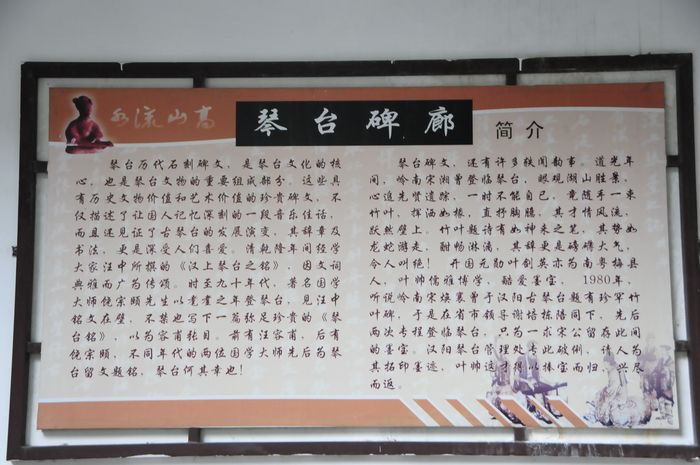 水流山高
琴台碑廊
简介
琴台历代石刻碑文，是琴台文化的核
心，也是琴台文物的重要组成部分。这些具
有历史文物价值和艺术价值的珍贵碑文，不
仅描述了让国人记忆深刻的一段音乐佳话，
而且还见证了古琴台的发展演变，其辞章及
书法，更是深受人们喜爱。清乾隆年间经学
大家汪中所撰的《汉上琴台之铭》，因文词
典雅而广为传颂。时至九十年代，著名国学
大师饶宗颐先生以耄耋之年登琴台，见汪中
铭文在壁，不禁也写下一篇弥足珍贵的《琴
台铭》，以为容甫张目。前有汪容甫，后有
饶宗颐，不同年代的两位国学大师先后为琴
台留文题铭，琴台何其幸也！
琴台碑文，还有许多轶闻韵事。道光年
间，岭南宋湘曾登临琴台，眼观湖山胜景，
心追先贤遗踪，一时不能自已，竟随手一束
竹叶，挥洒如椽，直抒胸臆，其才情风流，
跃然壁上，竹叶题诗有如神来之笔，其势如
龙蛇游走，酣畅淋漓，其辞更是磅礴大气，
令人叫绝！开国元勋叶剑英亦为南粤梅县
人，叶帅儒雅博学，酷爱墨宝，1980年，
听说岭南宋焕襄曾于汉阳古琴台题有珍罕竹
叶碑，于是在省市领导谢培栋陪同下，先后
两次专程登临琴台，只为一求宋公留存此间
的墨宝。汉阳琴台管理处专此破例，请人为
其拓印墨迹，叶帅这才得以捧宝而归，兴尽
而返。